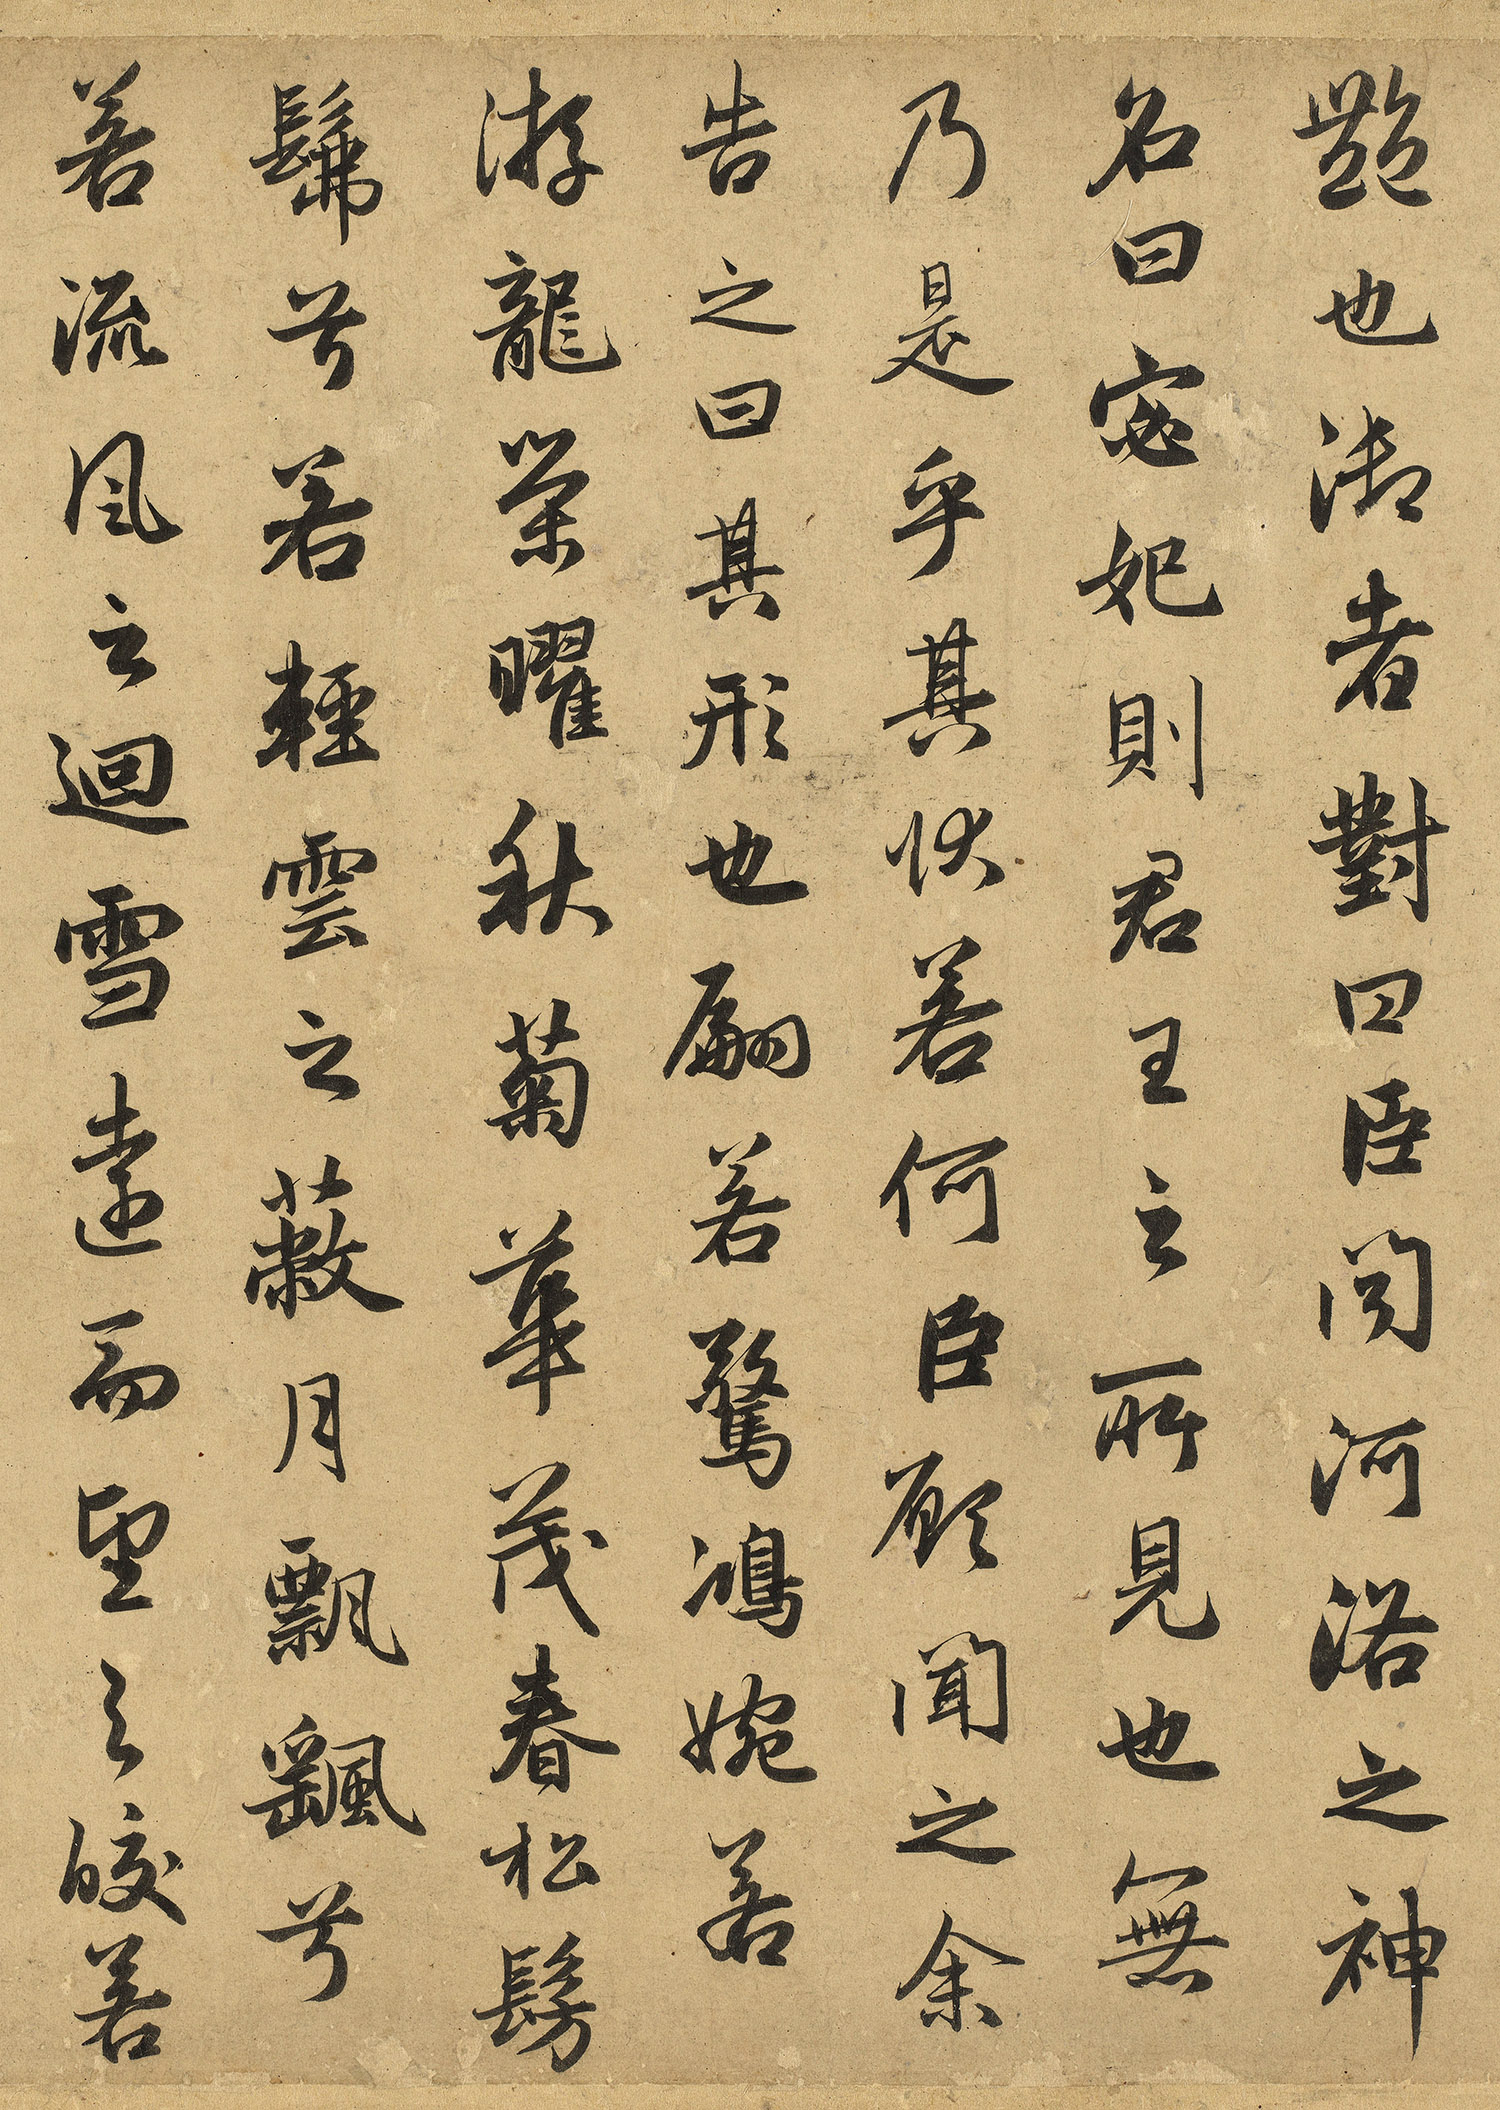 豔也御者對曰臣聞河洛之神
名曰宓妃則君王之所見也無
乃是乎其狀若何臣願聞之余
告之曰其形也翩若驚鴻婉若
游龍榮曜秋菊華茂春松髣
髴兮若輕雲之蔽月飄颻兮
若流風之迴雪遠而望之皎若